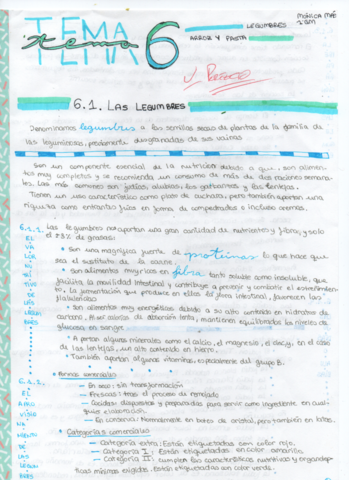 TEMA
tema 6
TEMA
LEGUMBRES
ARROZ Y PASTA
6.1. LAS LEGUMBRES
Denominamos legumbres a las semillas secas de plantas de la familia de
las leguminosas, previamente desgranadas de sus vainas
Son un componente esencial de la nutrición debido a que, son alimen-
tos muy completos y se recomienda un consumo de más de dos raciones semana-
les. Las más comunes son judías, alubias, los garbanzos y las lentejas.
Tienen un uso característico como plato de cuchara, pero también aportan una
riqueza como entrantes fríos en forma de empedrados e incluso cremas.
6.1.1. Las legumbres nos aportan una gran cantidad de nutrientes y fibra, y solo
EL el 3% de grasas:
VA • Son una magnífica fuente de proteínas lo que hace que
LOR sea el sustituto de la carne.
NU • Son alimentos muy ricos en fibra tanto soluble como insoluble, que
TRI facilita la movilidad intestinal y contribuye a prevenir y combatir el estreñimien-
TIVO to, la fermentación que produce en ellas la flora intestinal, favorecen las
DE flatulencias
LAS • Son alimentos muy energéticos debido a su alto contenido en hidratos de
LEGUM carbono. Al ser de absorción lenta, mantienen equilibrados los niveles de
BRES glucosa en sangre.
• Aportan algunos minerales como el calcio, el magnesio, el cinc y, en el caso
de las lentejas, un alto contenido en hierro.
• También aportan algunas vitaminas, especialmente del grupo B.
6.1.2. • Formas comerciales
EL — En seco: sin transformación
— Frescas: tras el proceso de remojado
— Cocidas: dispuestas y preparadas para servir como ingrediente en cual-
quier elaboración.
— En conserva: Normalmente en botes de cristal, pero también en latas.
• Categorías comerciales
DE — Categoría extra: Están etiquetadas con color rojo.
LAS — Categoría I: Están etiquetadas en color amarillo.
LEGUM — Categoría II: cumplen las características cuantitativas y organolép-
BRES ticas mínimas exigidas. Están etiquetadas con color verde.